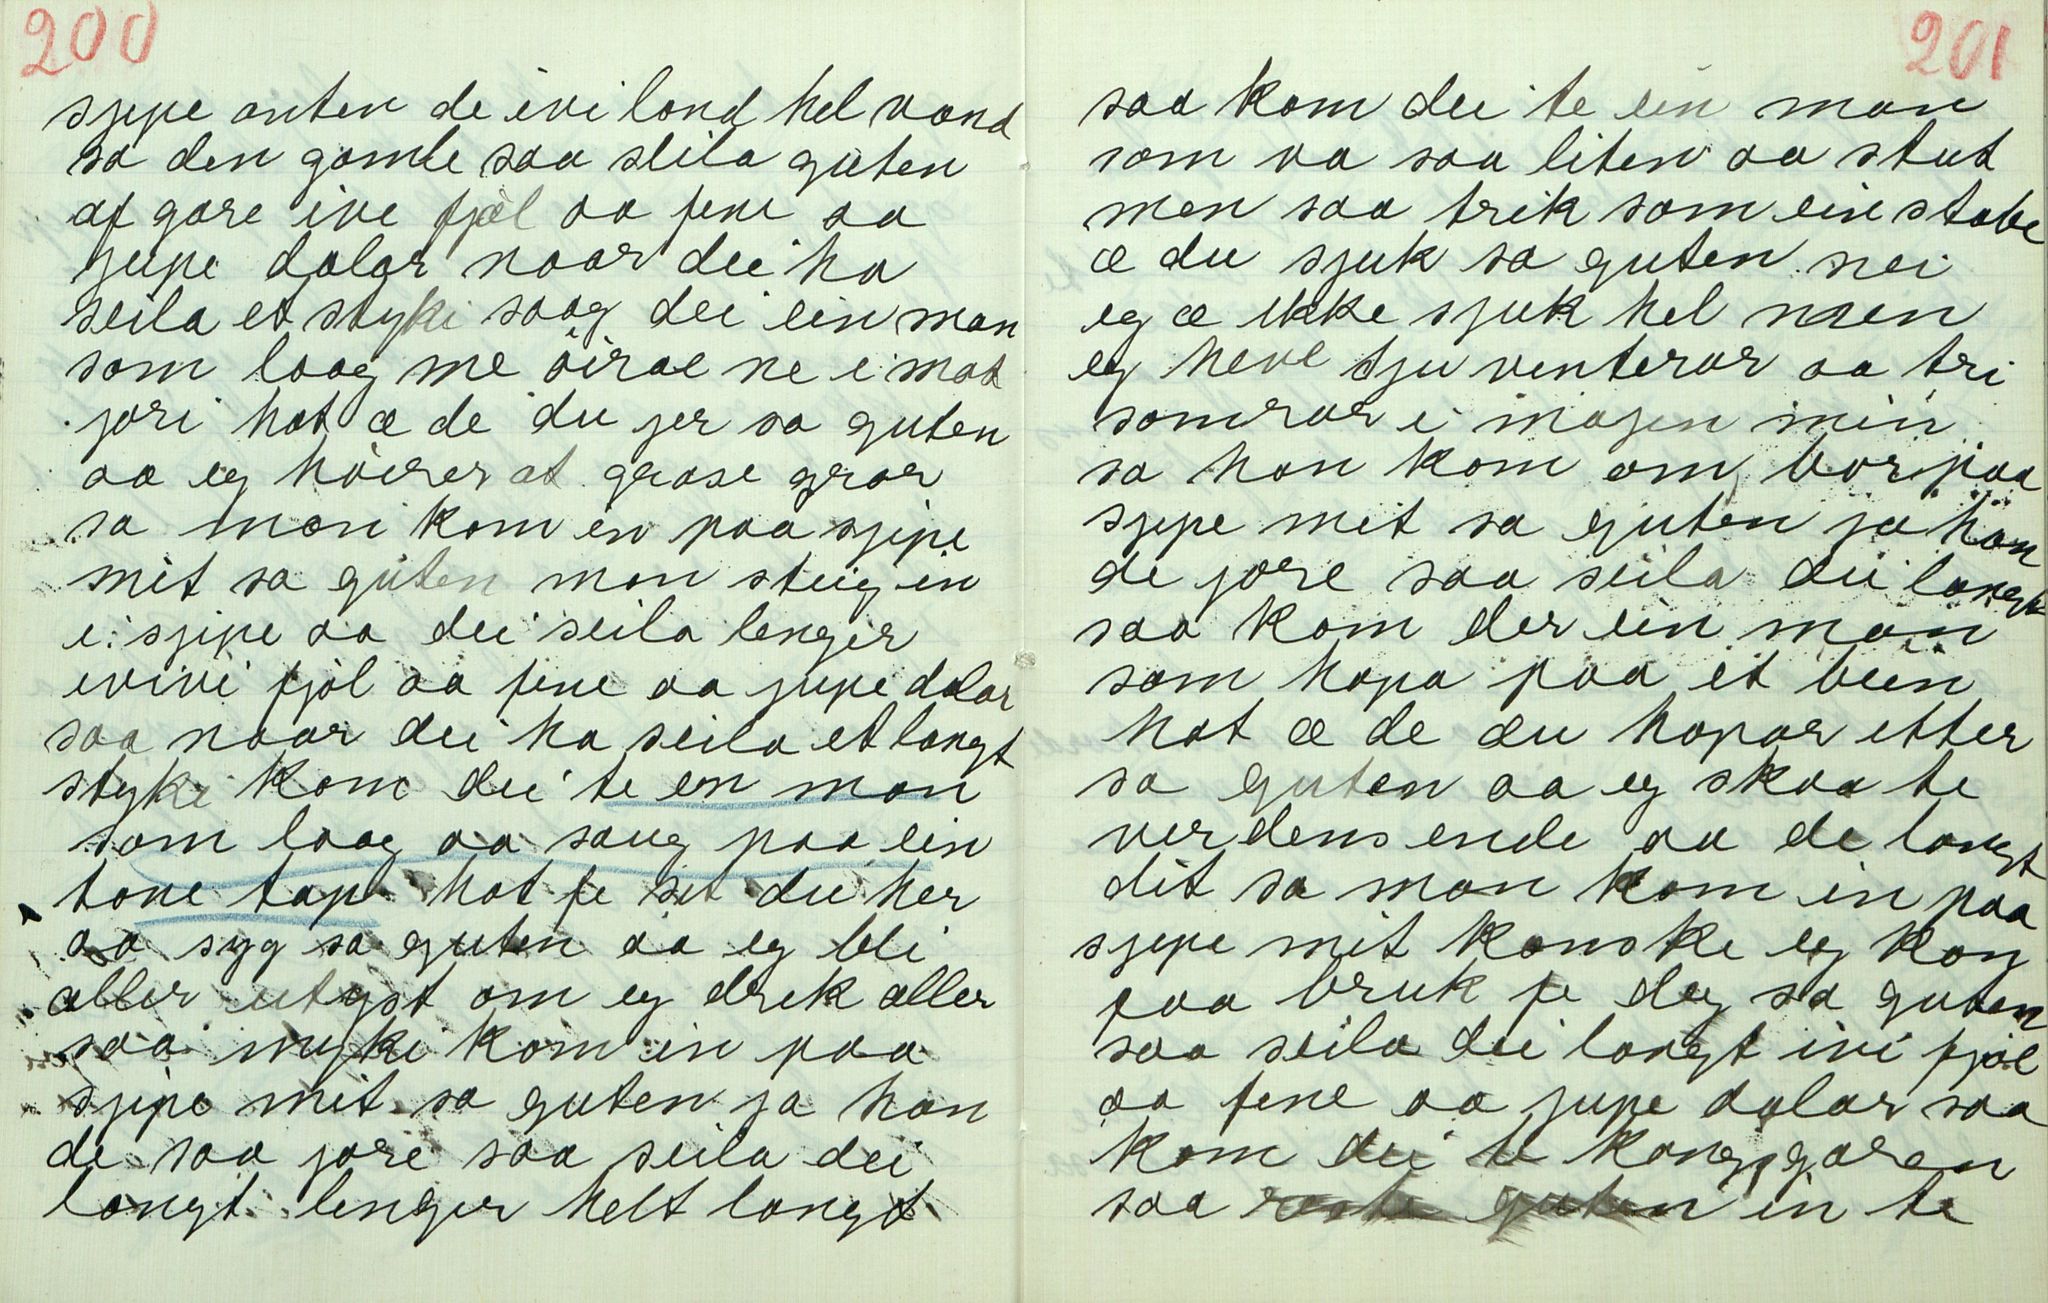 200
sjipe anten de e ivi land hel vand
sa den gamle saa seila guten
af gare ive fjæl aa fene aa
jupe dalar naar dei ha
seila et styki saag dei ein man
som laag me öirae ne i mot
jori hot æ de du jer sa guten
aa eg höirer at grase gror
sa mæn kom in paa sjipe
mit sa guten man steig in
i sjipe aa dei seila lenger
ivivi fjöl aa fene aa jupe dalar
saa naar dei ha seila et langt
styki kom dei te en man
som laag aa saug paa ein
tone tap hot fe sit du her
aa syg sa guten aa eg bli
aller utyst om eg drek aller
saa myki kom in paa
sjipe mit sa guten ja han
de saa jore saa seila dei
langt lenger helt langt
201
saa kom dei te ein man
som va saa liten aa stut
men saa trik som ein stabe
æ du sjuk sa guten nei
eg æ ikke sjuk hel men
eg heve tju venterar aa tri
somrar i majen min
sa han kom om bor paa
sjipe mit sa guten ja han
de jore saa seila dei langt
saa kom der ein man
som hopa paa et bein
hot æ de du hopar etter
sa guten aa eg skaa te
verdens ende aa de langt
dit sa man kom in paa
sjipe mit kanske eg kan
faa bruk fe deg sa guten
saa seila dei langt ivi fjöl
aa fene aa jupe dalar saa
kom dei te kongsgaren
saa guten in te